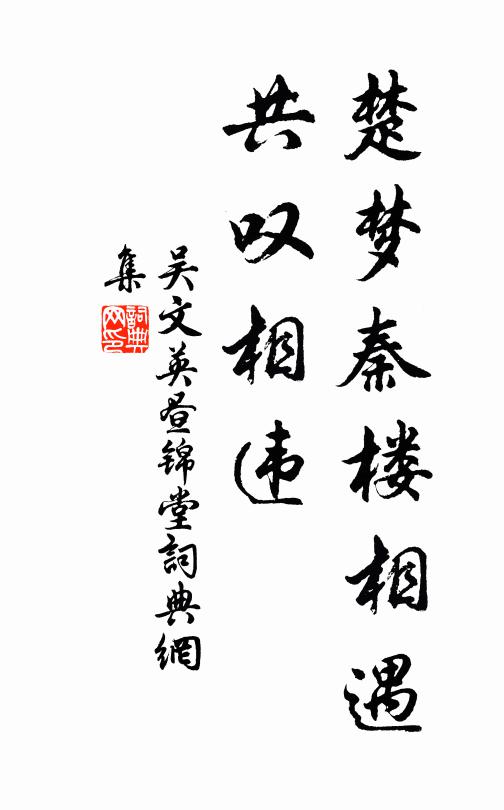 楚梦秦楼相遇
共叹相违
吴文英昼锦堂詞典網
集
詞典
网印